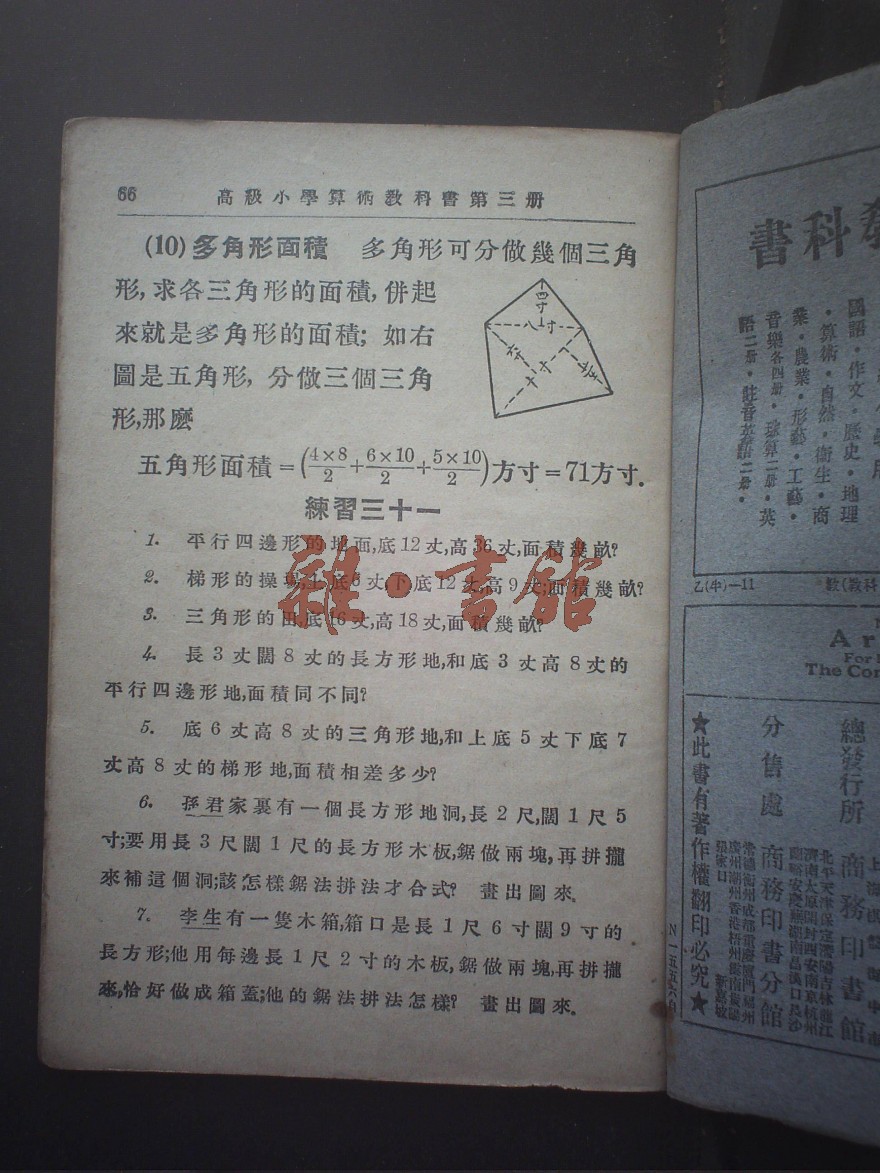 66 高級小學算術教科書第三册
(10) 多角形面積 多角形可分做幾個三角
形,求各三角形的面積,併起
來就是多角形的面積; 如右
圖是五角形, 分做三個三角
形,那麽
四寸
八寸
五角形面積=(4×8/2+6×10/2+5×10/2)方寸=71方寸.
練習三十一
1. 平行四邊形的地面,底12丈,高36丈,面積幾畝?
2. 梯形的操場,上底6丈,下底12丈,高9丈;面積幾畝?
3. 三角形的田,底16丈,高18丈,面積幾畝?
4. 長3丈闊8丈的長方形地,和底3丈高8丈的
平行四邊形地,面積同不同?
5. 底6丈高8丈的三角形地,和上底5丈下底7
丈高8丈的梯形地,面積相差多少?
6. 孫君家裏有一個長方形地洞,長2尺,闊1尺5
寸;要用長3尺闊1尺的長方形木板,鋸做兩塊,再拼攏
來補這個洞;該怎樣鋸法拼法才合式? 畫出圖來。
7. 李生有一隻木箱,箱口是長1尺6寸闊9寸的
長方形;他用每邊長1尺2寸的木板,鋸做兩塊,再拼攏
來,恰好做成箱蓋;他的鋸法拼法怎樣? 畫出圖來。
雜·書館
教科書
國語·作文·歷史·地理
·算術·自然·衛生·商
業·農業·形藝·工藝·
音樂各四册·珠算二册·英
語二册·註音英語二册·
乙(牛)—11
Ar
For
The Com
總發行所 商務印書館
分售處 商務印書分館
★此書有著作權翻印必究★